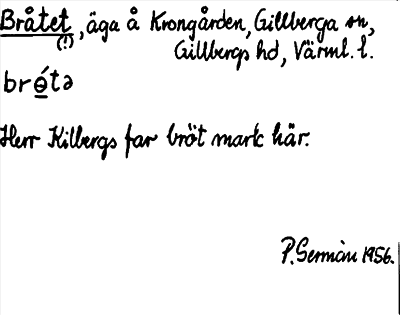 Bråtet, äga å Krongården, Gillberga sn,
(!) Gillbergs hd, Värml. l.
brǿ̠tə
Herr Kilbergs far bröt mark här.
P. Germàn 1956.